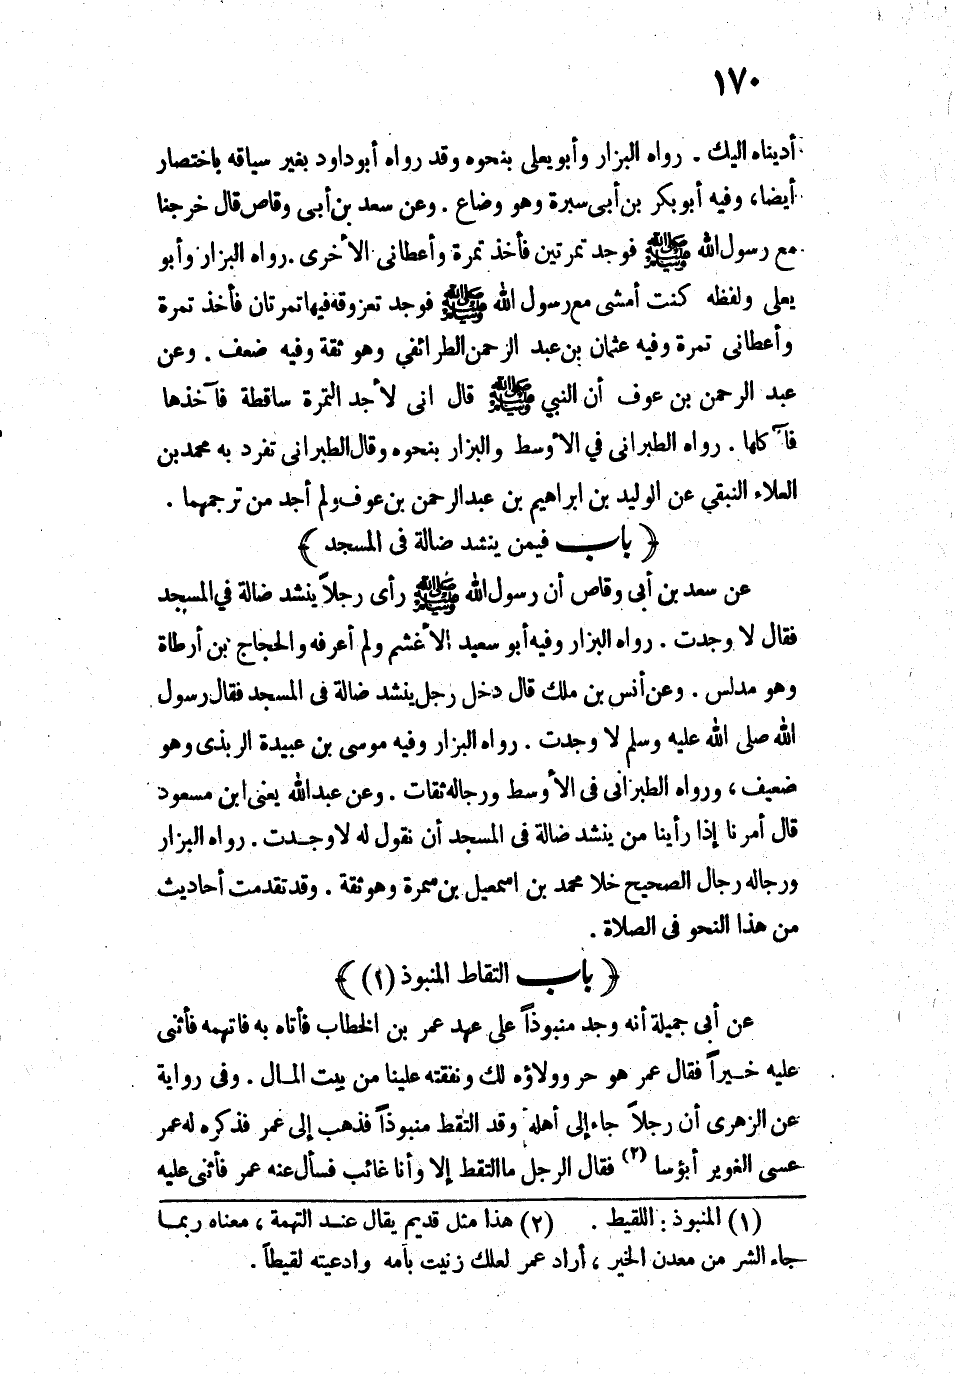 ١٧٠
أديناه اليك . رواه البزار وأبو يعلى بنحوه وقد رواه أبو داود بغير سياقه باختصار
أيضا، وفيه أبو بكر بن أبى سبرة وهو وضاع . وعن سعد بن أبى وقاص قال خرجنا
مع رسول الله ﷺ فوجد تمرتين فأخذ تمرة وأعطانى الأخرى . رواه البزار وأبو
يعلى ولفظه كنت أمشى مع رسول الله ﷺ فوجد تعزوقة فيها تمرتان فأخذ تمرة
وأعطانى تمرة وفيه عثمان بن عبد الرحمن الطرائفي وهو ثقة وفيه ضعف . وعن
عبد الرحمن بن عوف أن النبي ﷺ قال انى لأجد التمرة ساقطة فآخذها
فآكلها . رواه الطبرانى في الأوسط والبزار بنحوه وقال الطبرانى تفرد به محمد بن
العلاء النبقي عن الوليد بن ابراهيم بن عبد الرحمن بن عوف ولم أجد من ترجمهما .
﴿ باب فيمن ينشد ضالة فى المسجد ﴾
عن سعد بن أبى وقاص أن رسول الله ﷺ رأى رجلاً ينشد ضالة في المسجد
فقال لا وجدت . رواه البزار وفيه أبو سعيد الأغشم ولم أعرفه والحجاج بن أرطاة
وهو مدلس . وعن أنس بن ملك قال دخل رجل ينشد ضالة فى المسجد فقال رسول
الله صلى الله عليه وسلم لا وجدت . رواه البزار وفيه موسى بن عبيدة الربذى وهو
ضعيف ، ورواه الطبرانى فى الأوسط ورجاله ثقات . وعن عبد الله يعنى ابن مسعود
قال أمرنا إذا رأينا من ينشد ضالة فى المسجد أن نقول له لا وجـدت . رواه البزار
ورجاله رجال الصحيح خلا محمد بن اسمعيل بن سمرة وهو ثقة . وقد تقدمت أحاديث
من هذا النحو فى الصلاة .
﴿ باب التقاط المنبوذ (١) ﴾
عن أبى جميلة أنه وجد منبوذاً على عهد عمر بن الخطاب فأتاه به فاتهمه فأثنى
عليه خـيراً فقال عمر هو حر وولاؤه لك ونفقته علينا من بيت المـال . وفى رواية
عن الزهرى أن رجلاً جاء إلى أهله وقد التقط منبوذاً فذهب إلى عمر فذكره له عمر
عسى الغوير أبؤسا (٢) فقال الرجل ما التقط إلا وأنا غائب فسأل عنه عمر فأثنى عليه
(١) المنبوذ : اللقيط . (٢) هذا مثل قديم يقال عنـد التهمة ، معناه ربمـا
جاء الشر من معدن الخير ، أراد عمر لعلك زنيت بأمه وادعيته لقيطاً .